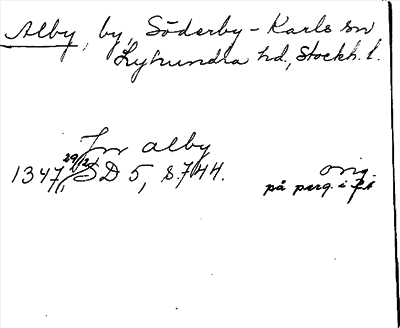 Alby, by, Söderby-Karls sn
Lyhundra hd., Stockh. l.
In alby
1347 29/12, SD 5, s. 744. orig.
på perg. i